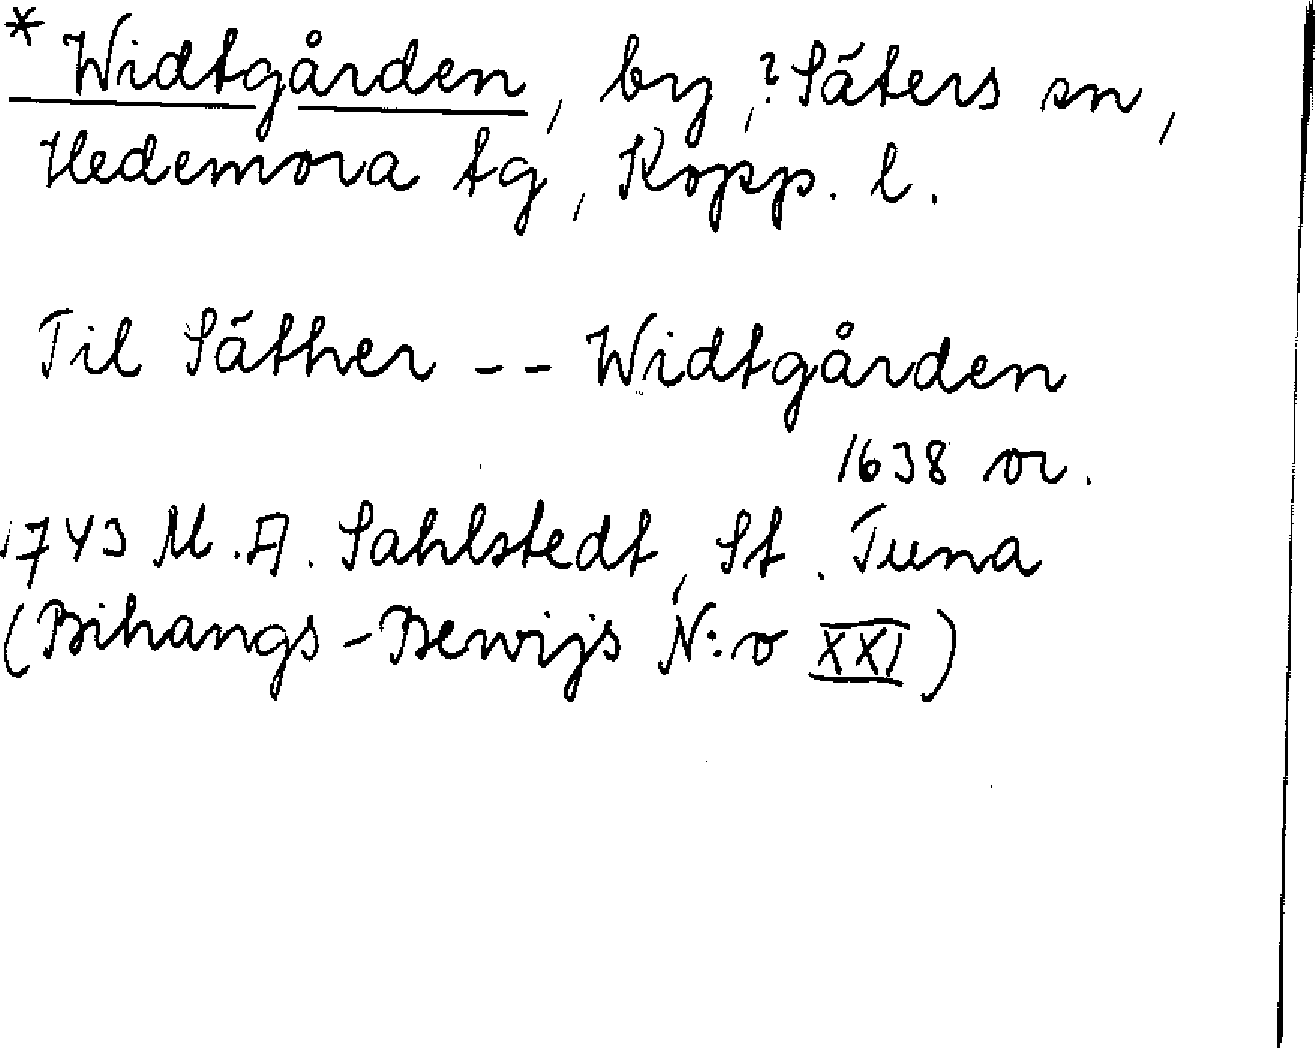 * Widtgården, by, ? Säters sn,
Hedemora tg, Kopp. l.
Til Säther -- Widtgården
1638 or.
1743 M.A. Sahlstedt, St. Tuna
(Bihangs-Bewijs N:o XXI)